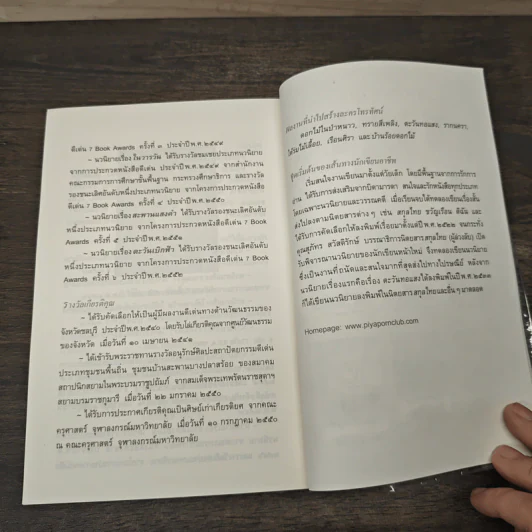 ดีเด่น 7 Book Awards ครั้งที่ ๓ ประจำปีพ.ศ.๒๕๔๙
– นวนิยายเรื่อง ในวารวัน ได้รับรางวัลชมเชยประเภทนวนิยาย
จากการประกวดหนังสือดีเด่น ประจำปีพ.ศ.๒๕๔๙ จากสำนักงาน
คณะกรรมการการศึกษาขั้นพื้นฐาน กระทรวงศึกษาธิการ และรางวัล
รองชนะเลิศอันดับหนึ่งประเภทนวนิยาย จากโครงการประกวดหนังสือ
ดีเด่น 7 Book Awards ครั้งที่ ๔ ประจำปีพ.ศ.๒๕๕๐
– นวนิยายเรื่อง สะพานแสงคำ ได้รับรางวัลรองชนะเลิศอันดับ
หนึ่งประเภทนวนิยาย จากโครงการประกวดหนังสือดีเด่น 7 Book
Awards ครั้งที่ ๕ ประจำปีพ.ศ.๒๕๕๑
– นวนิยายเรื่อง ตะวันเบิกฟ้า ได้รับรางวัลรองชนะเลิศอันดับ
หนึ่งประเภทนวนิยาย จากโครงการประกวดหนังสือดีเด่น 7 Book
Awards ครั้งที่ ๖ ประจำปีพ.ศ.๒๕๕๒
รางวัลเกียรติคุณ
– ได้รับคัดเลือกให้เป็นผู้มีผลงานดีเด่นทางด้านวัฒนธรรมของ
จังหวัดชลบุรี ประจำปีพ.ศ.๒๕๔๐ โดยรับโล่เกียรติคุณจากศูนย์วัฒนธรรม
ของจังหวัด เมื่อวันที่ ๑๐ เมษายน ๒๕๔๑
– ได้เข้ารับพระราชทานรางวัลอนุรักษ์ศิลปะสถาปัตยกรรมดีเด่น
ประเภทชุมชนพื้นถิ่น ชุมชนบ้านสะพานบางปลาสร้อย ของสมาคม
สถาปนิกสยามในพระบรมราชูปถัมภ์ จากสมเด็จพระเทพรัตนราชสุดาฯ
สยามบรมราชกุมารี เมื่อวันที่ ๒๒ มกราคม ๒๕๕๐
– ได้รับการประกาศเกียรติคุณเป็นศิษย์เก่าเกียรติยศ จากคณะ
ครุศาสตร์ จุฬาลงกรณ์มหาวิทยาลัย เมื่อวันที่ ๑๐ กรกฎาคม ๒๕๕๐
ณ คณะครุศาสตร์ จุฬาลงกรณ์มหาวิทยาลัย
ผลงานที่นำไปสร้างละครโทรทัศน์
ดอกไม้ในป่าหนาว, ทรายสีเพลิง, ตะวันทอแสง, รากนครา,
ใต้ร่มไม้เลื้อย, เรือนศิรา และ บ้านร้อยดอกไม้
จุดเริ่มต้นของเส้นทางนักเขียนอาชีพ
เริ่มสนใจงานเขียนมาตั้งแต่วัยเด็ก โดยมีพื้นฐานจากการรักการ
อ่าน ได้รับการส่งเสริมจากบิดามารดา สนใจและรักหนังสือทุกประเภท
โดยเฉพาะนวนิยายและวรรณคดี เมื่อเรียนจบได้ทดลองเขียนเรื่องสั้น
ส่งไปลงตามนิตยสารต่างๆ เช่น สกุลไทย ขวัญเรือน ดิฉัน และ
ได้รับการคัดเลือกให้ลงพิมพ์เรื่อยมาตั้งแต่ปีพ.ศ.๒๕๒๒ จนกระทั่ง
คุณสุภัทร สวัสดิรักษ์ บรรณาธิการนิตยสารสกุลไทย (ผู้ล่วงลับ) เปิด
รับพิจารณานวนิยายของนักเขียนหน้าใหม่ จึงทดลองเขียนนวนิยาย
ซึ่งเป็นงานที่ถนัดและสนใจมากที่สุดส่งไปทางไปรษณีย์ หลังจาก
นวนิยายเรื่องแรกคือเรื่อง ตะวันทอแสง ได้ลงพิมพ์ในปีพ.ศ.๒๕๓๓
ก็ได้เขียนนวนิยายลงพิมพ์ในนิตยสารสกุลไทยและอื่นๆ มาตลอด
Homepage: www.piyapornclub.com